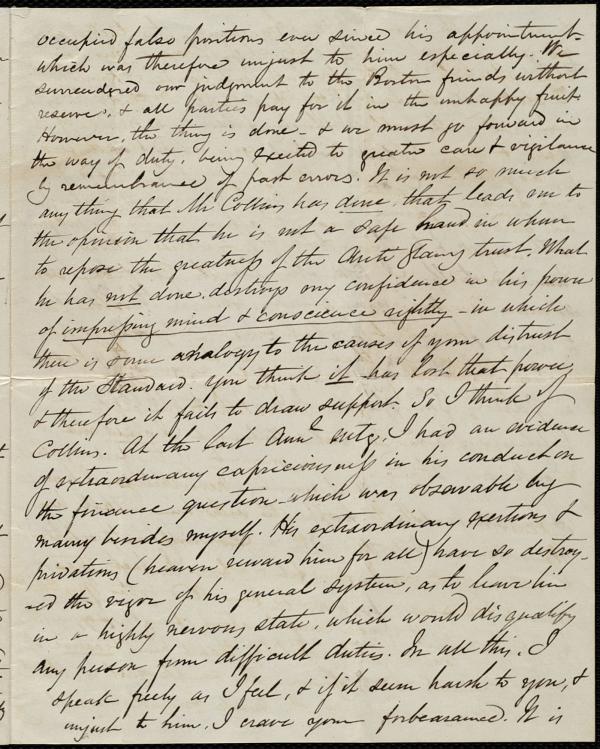 occupied false positions ever since his appointment
which was therefore unjust to him especially. We
surrendered our judgment to the Boston friends without
reserve, & all parties pay for it in the unhappy fruit.
However, the thing is done - & we must go forward in
the way of duty, being excited to greater care & vigilance
by remembrance of past errors. It is not so much
any thing that Mr Collins has done, that leads me to
the opinion that he is not a safe hand in whom
to repose the greatness of the Anti Slavery trust. What
he has not done, destroys my confidence in his power
of impressing mind & conscience rightly - in which
there is some analogy to the causes of your distrust
of the Standard. You think it has lost that power,
& therefore it fails to draw support. So I think of
Collins. At the last Annl meetg, I had an evidence
of extraordinary capriciousness in his conduct on
the finance question - which was observable by
many besides myself. His extraordinary exertions &
privations (heaven reward him for all) have so destroy-
-ed the vigor of his general system, as to leave him
in a highly nervous state, which would disqualify
any person from difficult duties. In all this, I
speak freely as I feel, & if it seem harsh to you, &
unjust to him, I crave your forbearance. It is